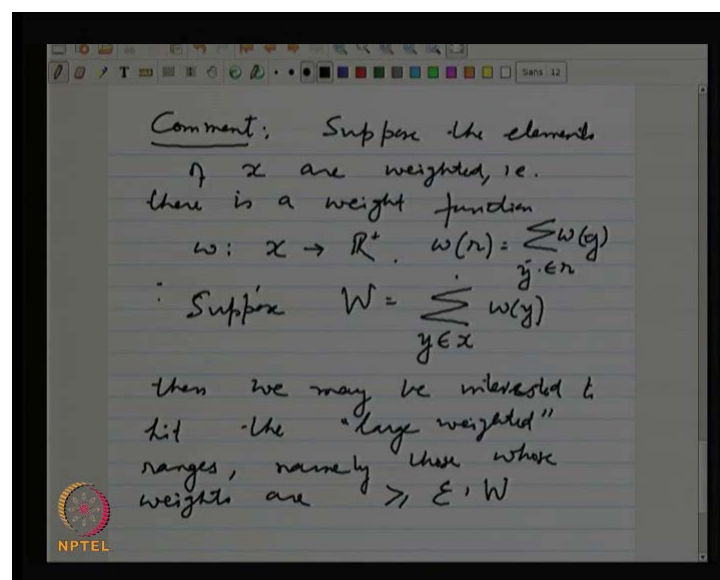 Sans 12
Comment: Suppose the elements
of x are weighted, i.e.
there is a weight function
w: x → R⁺. w(r) = ∑ w(y)
y ∈ r
Suppose W = ∑ w(y)
y ∈ x
then we may be interested to
hit the "large weighted"
ranges, namely those whose
weights are ≥ ε · W
NPTEL